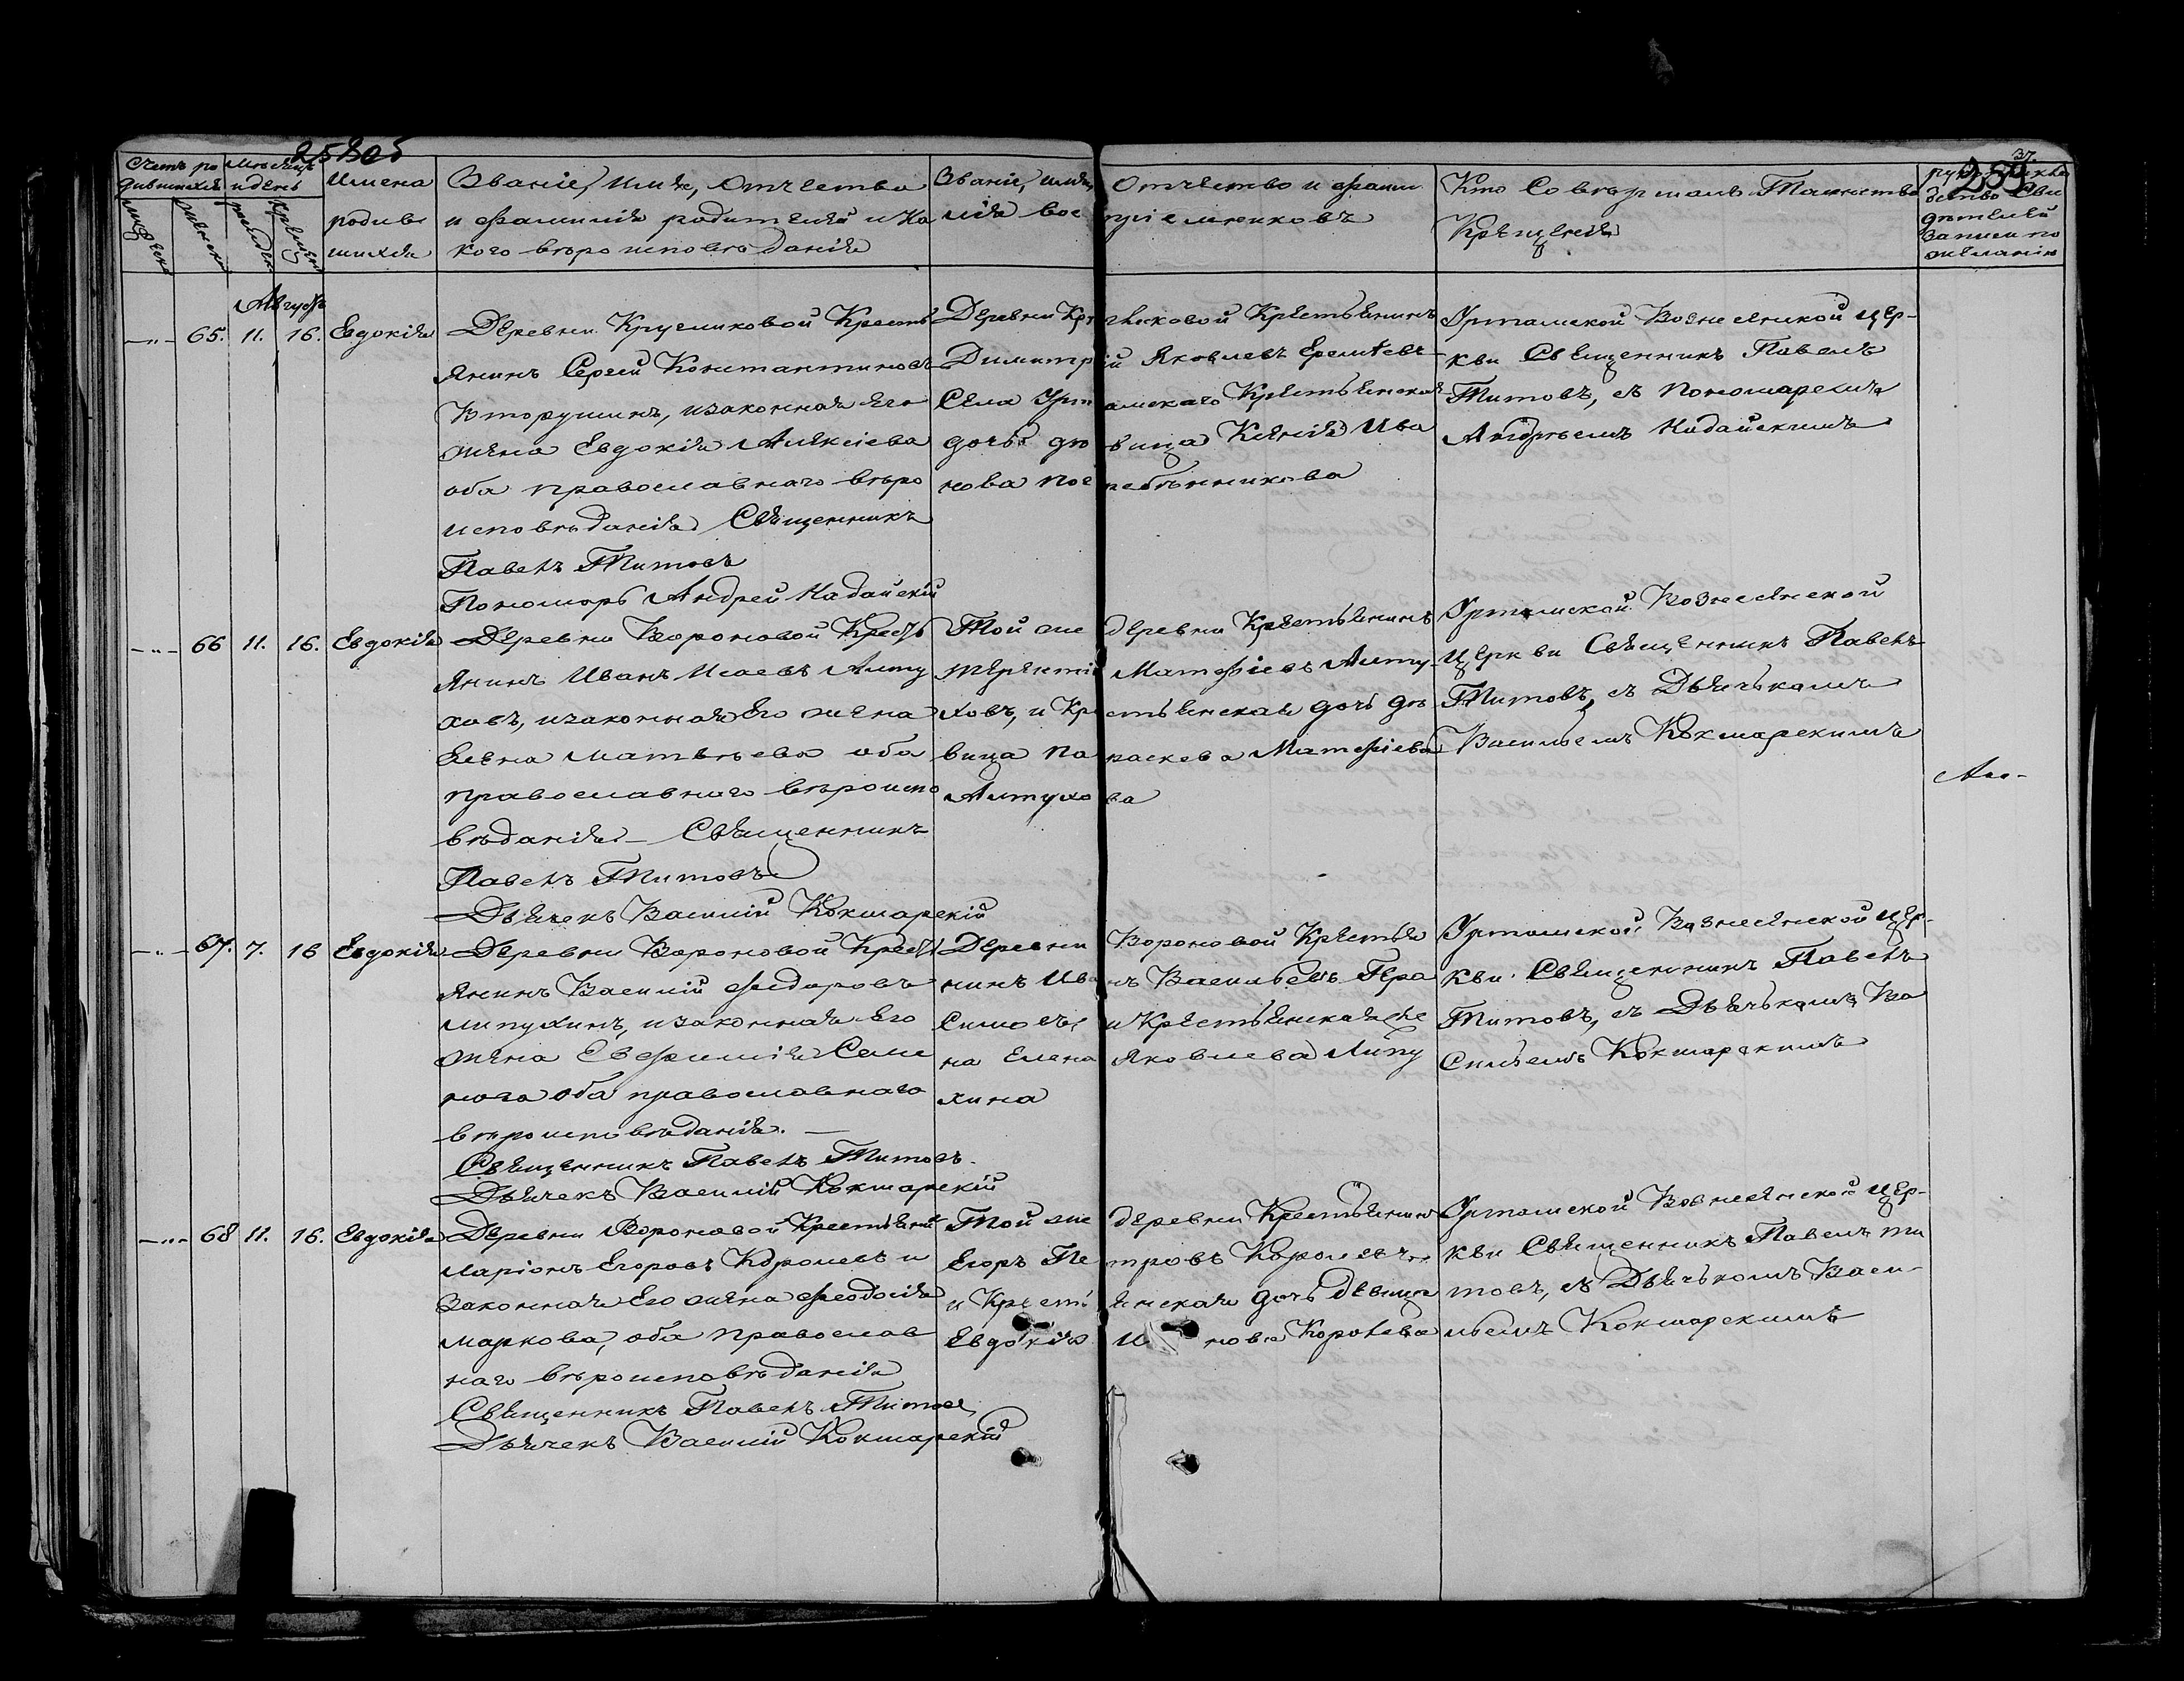 258об
37.
259
Счетъ ро
дившихся
Мѣсяцъ
и день
Имена
родив
шихся
Званіе, имя, Отчество
и фамилія родителей и ка
кого вѣроисповѣданія
Званіе, имя, Отчество и фами
лія воспріемниковъ
Кто Совершалъ Таинство
Крещенія
дство Сви
дѣтелей
записи по
желанію
мужеска
женска
рожденія
крещенія
Августъ
—„— 65. 11. 16. Евдокія
Деревни Кругликовой Кресть
янинъ Сергей Константиновъ
Вторушинъ, изаконная его
жена Евдокія Алексіева
оба православнаго вѣро
исповѣданія Священникъ
Павелъ Титовъ
Пономарь Андрей Кадайскій
Деревни Кругликовой Крестьянинъ
Димитрій Яковлевъ Еремѣевъ
Села Уртамскаго Крестьянская
дочь дѣвица Ксенія Ива
нова Поскребышникова
Уртамской Вознесенской цер-
кви Священникъ Павелъ
Титовъ, съ Пономаремъ
Андреемъ Кадайскимъ
—„— 66 11. 16. Евдокія
Деревни Вороновой Кресть
янинъ Иванъ Исаевъ Алту
ховъ, изаконная Его жена
Елена Матвѣева оба
православнаго вѣроиспо
вѣданія — Священникъ
Павелъ Титовъ
Дьячекъ Василій Кокшарскій
Той же деревни Крестьянинъ
Терентій Матфіевъ Алту-
ховъ, и Крестьянская дочь дѣ
вица Параскева Матфіева
Алтухова
Уртамской Вознесенской
Церкви Священникъ Павелъ
Титовъ, съ Дьячькомъ
Васильемъ Кокшарскимъ
—„— 67. 7. 16 Евдокія
Деревни Вороновой Кресть
янинъ Василій Федоровъ
Липухинъ, изаконная Его
жена Евфимія Семе
нова оба православнаго
вѣроисповѣданія. —
Священникъ Павелъ Титовъ
Дьячекъ Василій Кокшарскій
Деревни Вороновой Крестья
нинъ Иванъ Васильевъ Гера
симовъ, и Крестьянская же
на Елена Яковлева Липу
хина
Уртамской Вознесенской цер-
кви Священникъ Павелъ
Титовъ, съ Дьячькомъ Ва
сильемъ Кокшарскимъ
—„— 68 11. 16. Евдокія
Деревни Вороновой Крестьянинъ
Ларіонъ Егоровъ Королевъ и
законная Его жена Феодосія
Маркова, оба православ
наго вѣроисповѣданія
Священникъ Павелъ Титовъ
Дьячекъ Василій Кокшарскій
Той же деревни Крестьянинъ
Егоръ Петровъ Королевъ
и Крестьянская дочь дѣвица
Евдокія И нова Королева
Уртамской Вознесенской цер-
кви Священникъ Павелъ Ти
товъ, съ Дьячькомъ Васи-
льемъ Кокшарскимъ